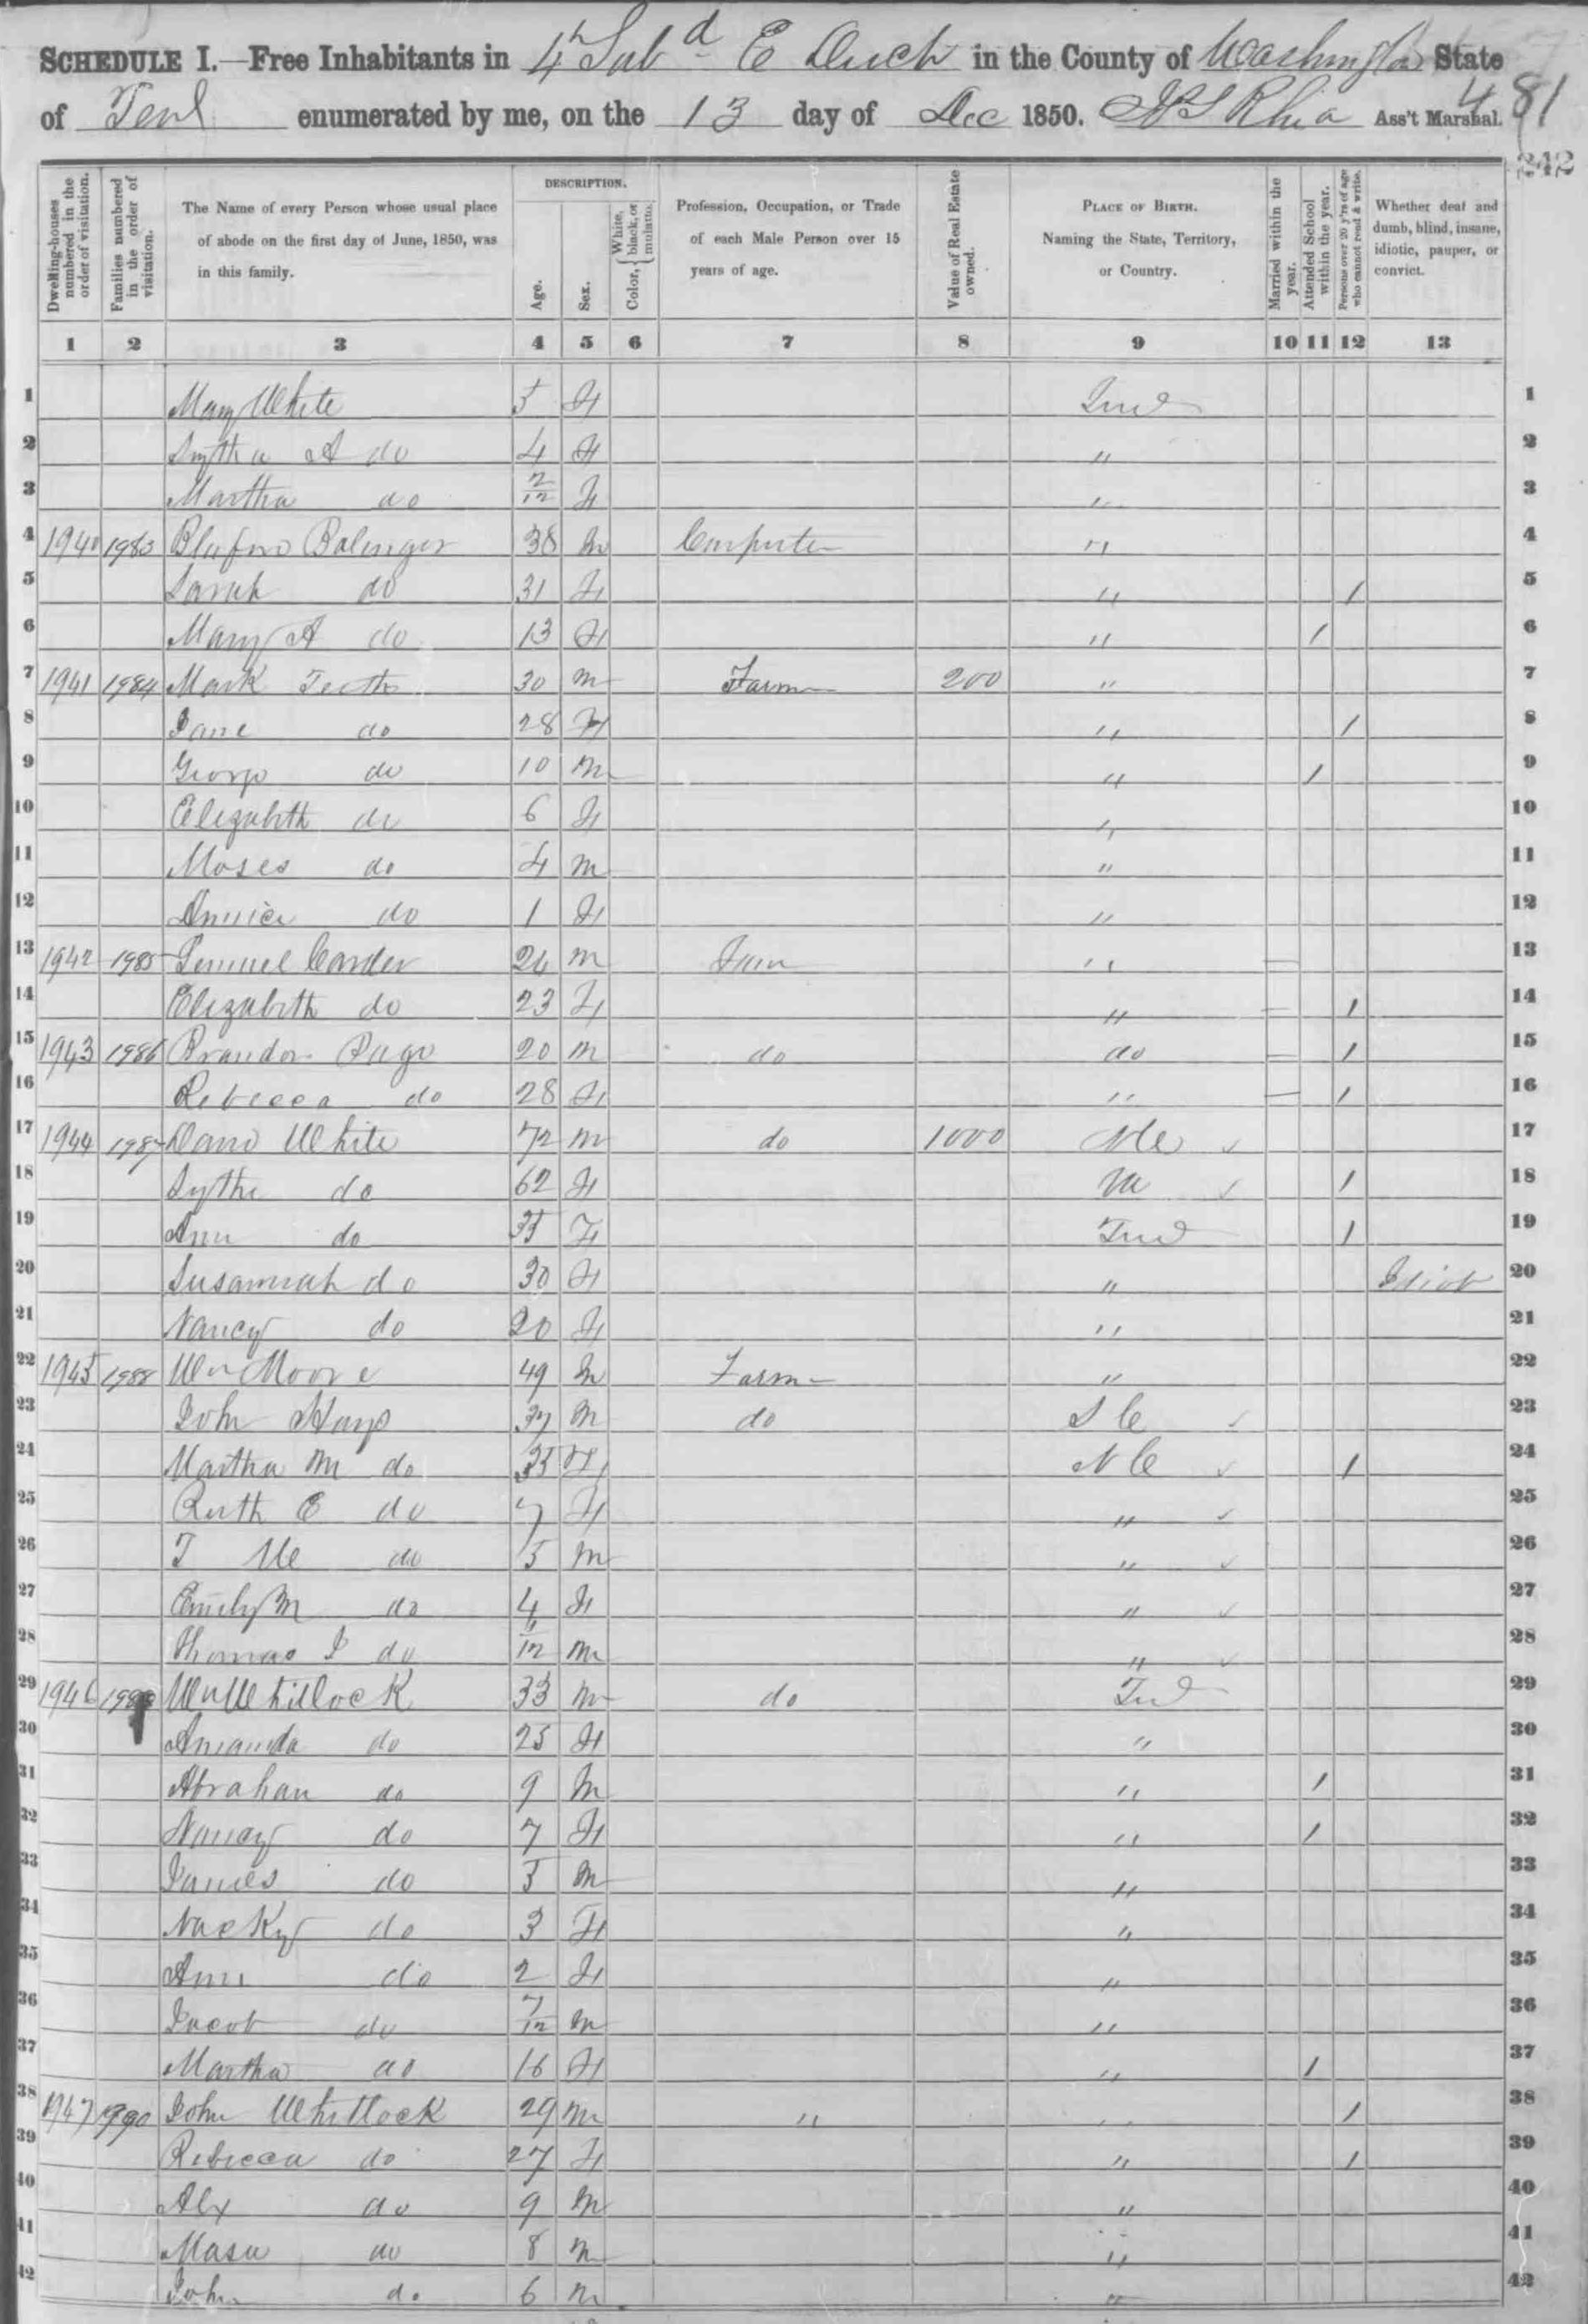 SCHEDULE I.—Free Inhabitants in 4th Sub d E in the County of Washington State
of enumerated by me, on the 13 day of Dec 1850. Ass't Marshal.
481
242
Dwelling-houses numbered in the order of visitation.
Families numbered in the order of visitation.
The Name of every Person whose usual place of abode on the first day of June, 1850, was in this family.
DESCRIPTION.
Age.
Sex.
Color, { White, black, or mulatto.
Profession, Occupation, or Trade of each Male Person over 15 years of age.
Value of Real Estate owned.
PLACE OF BIRTH. Naming the State, Territory, or Country.
Married within the year.
Attended School within the year.
Persons over 20 y'rs of age who cannot read & write.
Whether deaf and dumb, blind, insane, idiotic, pauper, or convict.
1 2 3 4 5 6 7 8 9 10 11 12 13
1 Mary White 5 F 1
2 A do 4 F " 2
3 Martha do 2/12 F " 3
4 1940 1983 38 m " 4
5 Sarah do 31 F " / 5
6 Mary A do 13 F " / 6
7 1941 1984 Mark 30 m Farm 200 " 7
8 Jane do 28 F " / 8
9 George do 10 m " / 9
10 Elizabeth do 6 F " 10
11 Moses do 4 m " 11
12 do 1 F " 12
13 1942 1985 Lemuel Carder m " — 13
14 Elizabeth do 23 F " — / 14
15 1943 1986 20 m do do — / 15
16 Rebecca do 28 F " — / 16
17 1944 1987 White 72 m do 1000 ✓ 17
18 do 62 F ✓ / 18
19 Ann do 35 F / 19
20 Susannah do 30 F " Idiot 20
21 Nancy do 20 F " 21
22 1945 1988 Wm Moore 49 m Farm " 22
23 John Hays 37 m do S C ✓ 23
24 Martha M do 35 F N C ✓ / 24
25 Ruth E do 7 F " ✓ 25
26 do 5 m " ✓ 26
27 Emily M do 4 F " ✓ 27
28 Thomas J do m " ✓ 28
29 1946 Wm Whitlock 33 m do 29
30 Amanda do 25 F " 30
31 Abraham do 9 m " / 31
32 Nancy do 7 F " / 32
33 James do 5 m " 33
34 do 3 F " 34
35 Ann do 2 F " 35
36 Jacob do 7/12 m " 36
37 Martha do 16 F " / 37
38 1947 1990 John Whitlock 29 m " " / 38
39 Rebecca do 27 F " / 39
40 Alx do 9 m " 40
41 do 8 m " 41
42 John do 6 m " 42